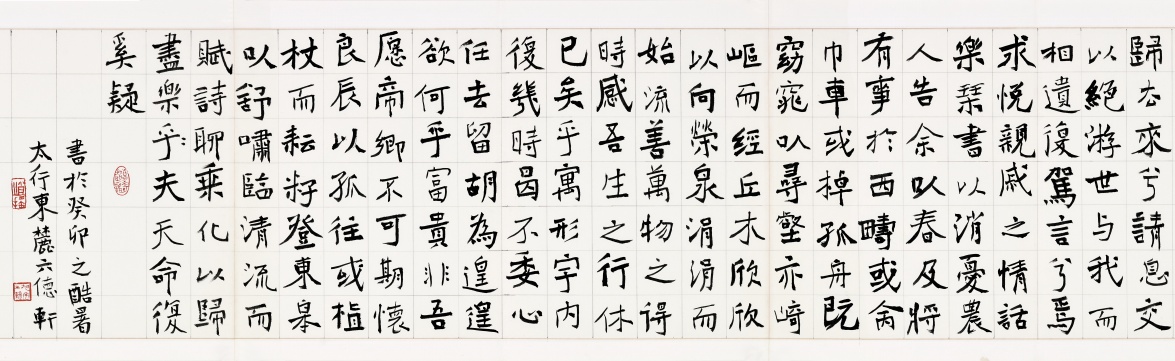 歸去來兮請息交
以絕游世与我而
相遺復駕言兮焉
求悅親戚之情話
樂琴書以消憂農
人告余以春及將
有事於西疇或命
巾車或棹孤舟既
窈窕以尋壑亦崎
嶇而經丘木欣欣
以向榮泉涓涓而
始流善萬物之得
時感吾生之行休
已矣乎寓形宇内
復幾時曷不委心
任去留胡為遑遑
欲何乎富貴非吾
愿帝鄉不可期懷
良辰以孤往或植
杖而耘籽登東皋
以舒嘯臨清流而
賦詩聊乘化以歸
盡樂乎夫天命復
奚疑
書於癸卯之酷暑
太行東麓六德軒